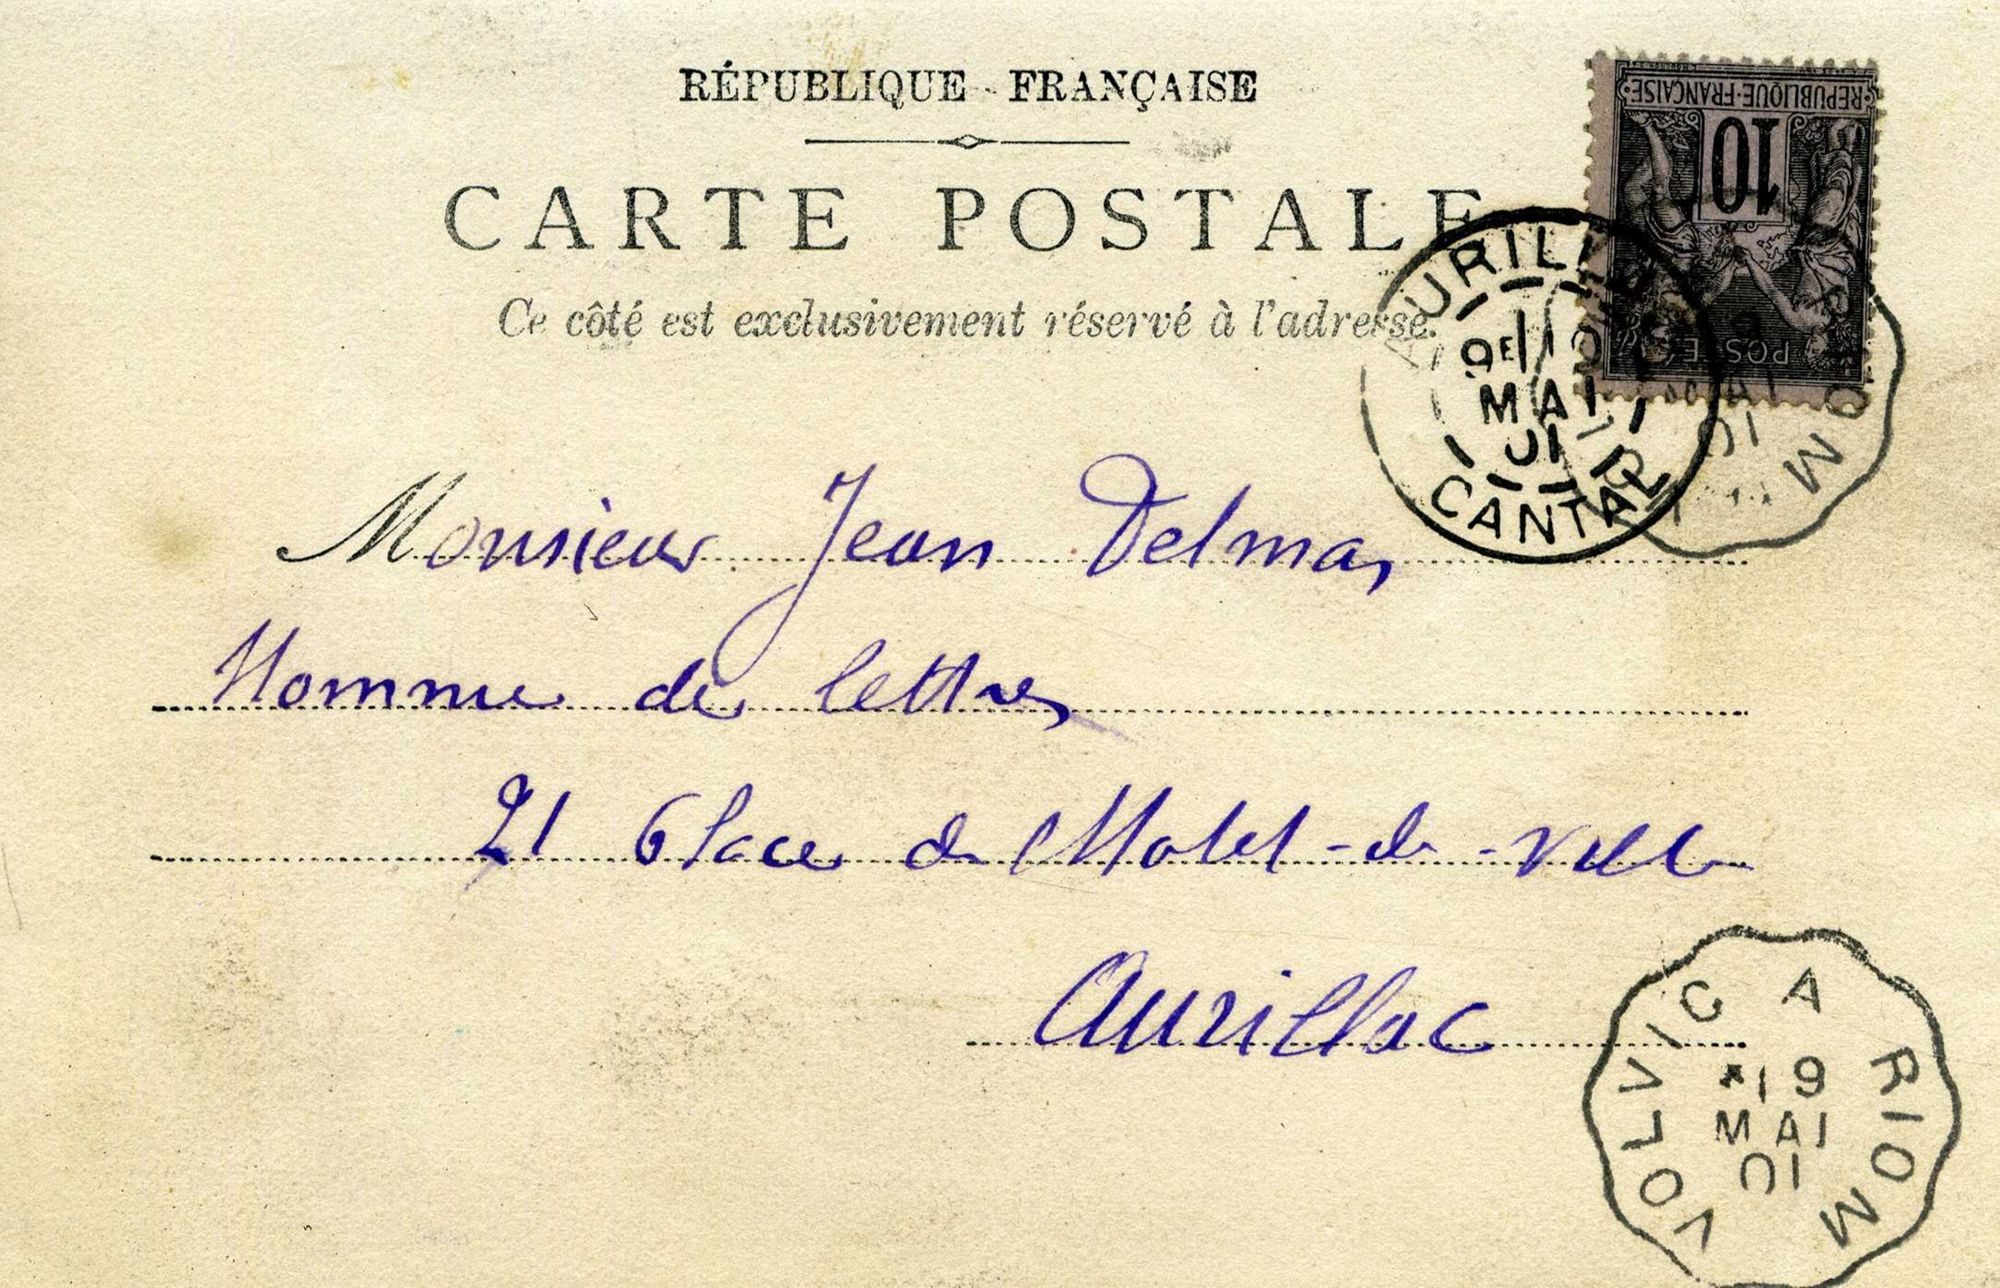 RÉPUBLIQUE FRANÇAISE
CARTE POSTALE
Ce côté est exclusivement réservé à l'adresse.
REPUBLIQUE·FRANÇAISE
10
POSTE
AURILLAC
9E 10
MAI
01
CANTAL
RIOM
01
Monsieur Jean Delmas
Homme de lettres
21 Place de l'Hotel-de-Ville
Aurillac
VOLVIC A RIOM
19
MAI
01